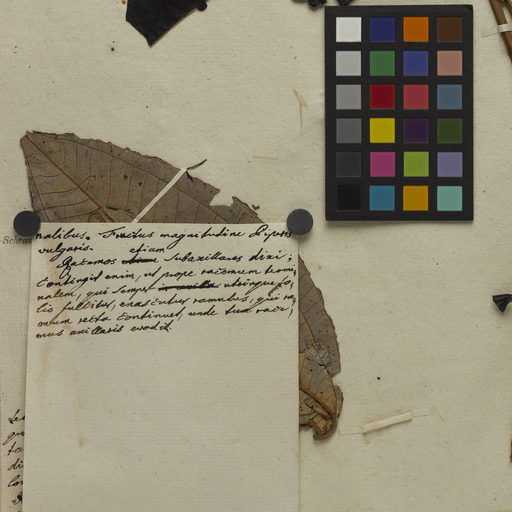 nalibus. Fructus magnitudine Piperis
vulgaris.
etiam
Racemos subaxillares dixi;
contingit enim, ut prope racemum termi,
nalem, qui semper utrinque fo,
lio fulcitus, enascatur ramulus, qui ra,
mum recta continuet, unde tum race,
mus axillaris evadit.
Schran